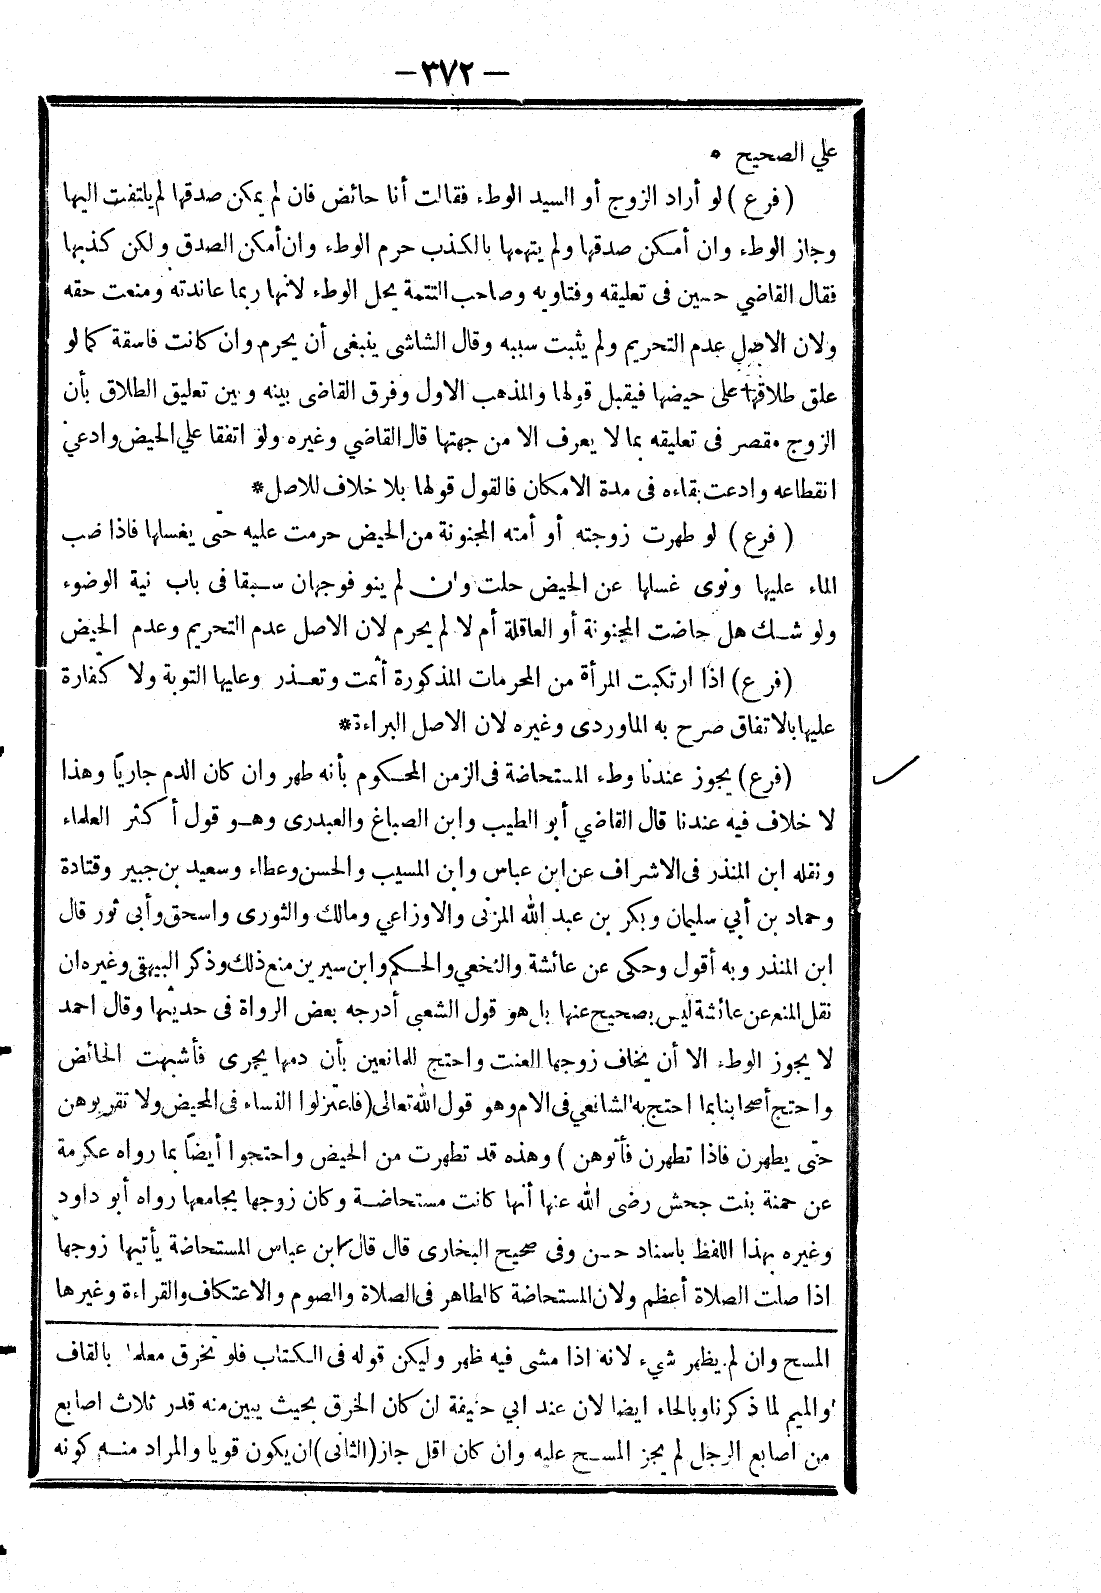 — ٣٧٢ —
علي الصحيح *
( فرع ) لو أراد الزوج أو السيد الوطء فقالت أنا حائض فان لم يمكن صدقها لم يلتفت اليها
وجاز الوطء وان أمكن صدقها ولم يتهمها بالكذب حرم الوطء وان أمكن الصدق ولكن كذبها
فقال القاضي حسين فى تعليقه وفتاويه وصاحب التتمة يحل الوطء لانها ربما عاندته ومنعت حقه
ولان الاصل عدم التحريم ولم يثبت سببه وقال الشاشى ينبغى أن يحرم وان كانت فاسقة كما لو
علق طلاقها على حيضها فيقبل قولها والمذهب الاول وفرق القاضى بينه وبين تعليق الطلاق بأن
الزوج مقصر فى تعليقه بما لا يعرف الا من جهتها قال القاضي وغيره ولو اتفقا علي الحيض وادعي
انقطاعه وادعت بقاءه فى مدة الامكان فالقول قولها بلا خلاف للاصل*
( فرع ) لو طهرت زوجته أو أمته المجنونة من الحيض حرمت عليه حتى يغسلها فاذا صب
الماء عليها ونوى غسلها عن الحيض حلت وان لم ينو فوجهان سبقا فى باب نية الوضوء
ولو شك هل حاضت المجنونة أو العاقلة أم لا لم يحرم لان الاصل عدم التحريم وعدم الحيض
(فرع) اذا ارتكبت المرأة من المحرمات المذكورة أثمت وتعذر وعليها التوبة ولا كفارة
عليها بالاتفاق صرح به الماوردى وغيره لان الاصل البراءة*
(فرع) يجوز عندنا وطء المستحاضة فى الزمن المحكوم بأنه طهر وان كان الدم جاريًا وهذا
لا خلاف فيه عندنا قال القاضي أبو الطيب وابن الصباغ والعبدرى وهو قول أكثر العلماء
ونقله ابن المنذر فى الاشراف عن ابن عباس وابن المسيب والحسن وعطاء وسعيد بن جبير وقتادة
وحماد بن أبي سليمان وبكر بن عبد الله المزنى والاوزاعي ومالك والثورى واسحق وأبى ثور قال
ابن المنذر وبه أقول وحكى عن عائشة والنخعي والحكم وابن سيرين منع ذلك وذكر البيهقى وغيره ان
نقل المنع عن عائشة ليس بصحيح عنها بل هو قول الشعبى أدرجه بعض الرواة فى حديثها وقال احمد
لا يجوز الوطء الا أن يخاف زوجها العنت واحتج للمانعين بأن دمها يجرى فأشبهت الحائض
واحتج أصحابنا بما احتج به الشافعي فى الام وهو قول الله تعالى (فاعتزلوا النساء فى المحيض ولا تقربوهن
حتى يطهرن فاذا تطهرن فأتوهن ) وهذه قد تطهرت من الحيض واحتجوا أيضًا بما رواه عكرمة
عن حمنة بنت جحش رضى الله عنها أنها كانت مستحاضة وكان زوجها يجامعها رواه أبو داود
وغيره بهذا اللفظ باسناد حسن وفى صحيح البخارى قال قال ابن عباس المستحاضة يأتيها زوجها
اذا صلت الصلاة أعظم ولان المستحاضة كالطاهر فى الصلاة والصوم والاعتكاف والقراءة وغيرها
المسح وان لم يظهر شيء لانه اذا مشى فيه ظهر وليكن قوله فى الكتاب فلو تخرق معلما بالقاف
والميم لما ذكرنا وبالحاء ايضا لان عند ابي حنيفة ان كان الخرق بحيث يبين منه قدر ثلاث اصابع
من اصابع الرجل لم يجز المسح عليه وان كان اقل جاز (الثانى) ان يكون قويا والمراد منه كونه